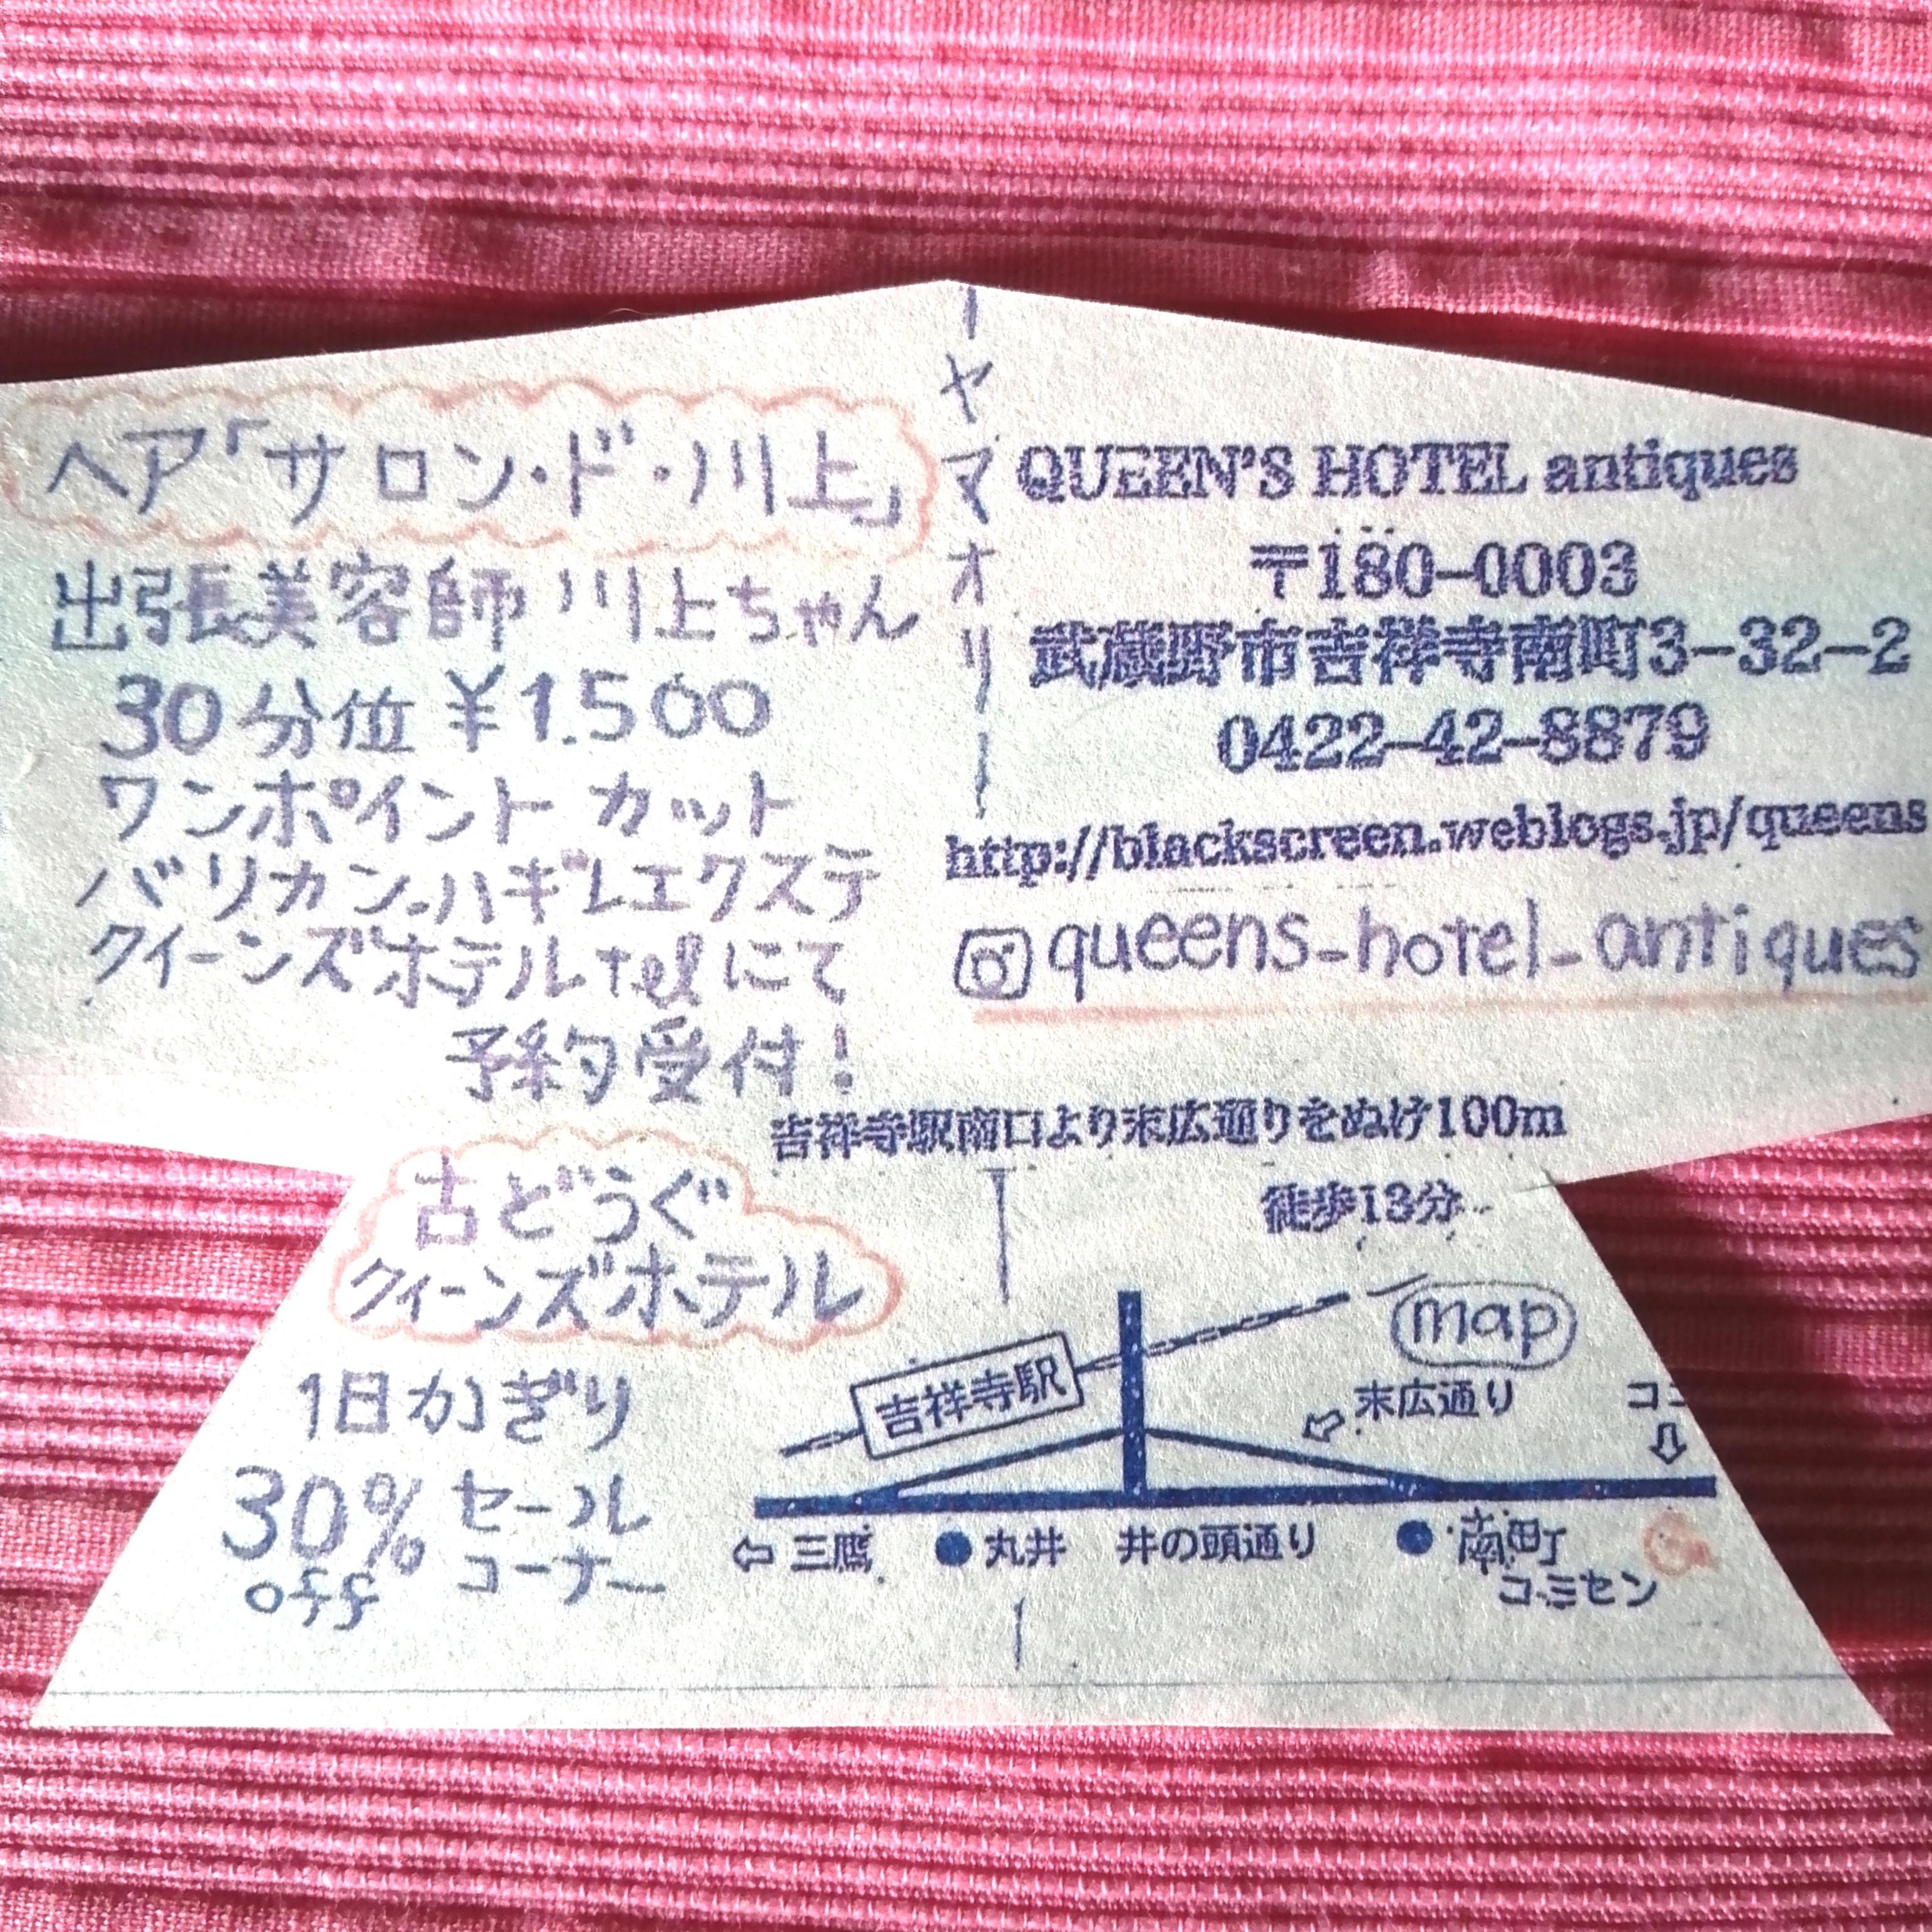 ヘア「サロン・ド・川上」
出張美容師 川上ちゃん
30分位 ¥1.500
ワンポイント カット
バリカン.ハギレエクステ
クイーンズホテル telにて
予約受付!
ーヤマオリー
QUEEN'S HOTEL antiques
〒180-0003
武蔵野市吉祥寺南町3-32-2
0422-42-8879
http://blackscreen.weblogs.jp/queens
queens-hotel-antiques
吉祥寺駅南口より末広通りをぬけ100m
徒歩13分
古どうぐ
クイーンズホテル
1日かぎり
30% セール
off コーナー
map
吉祥寺駅
末広通り
コニ
⇦ 三鷹 ●丸井 井の頭通り ●南町
コミセン